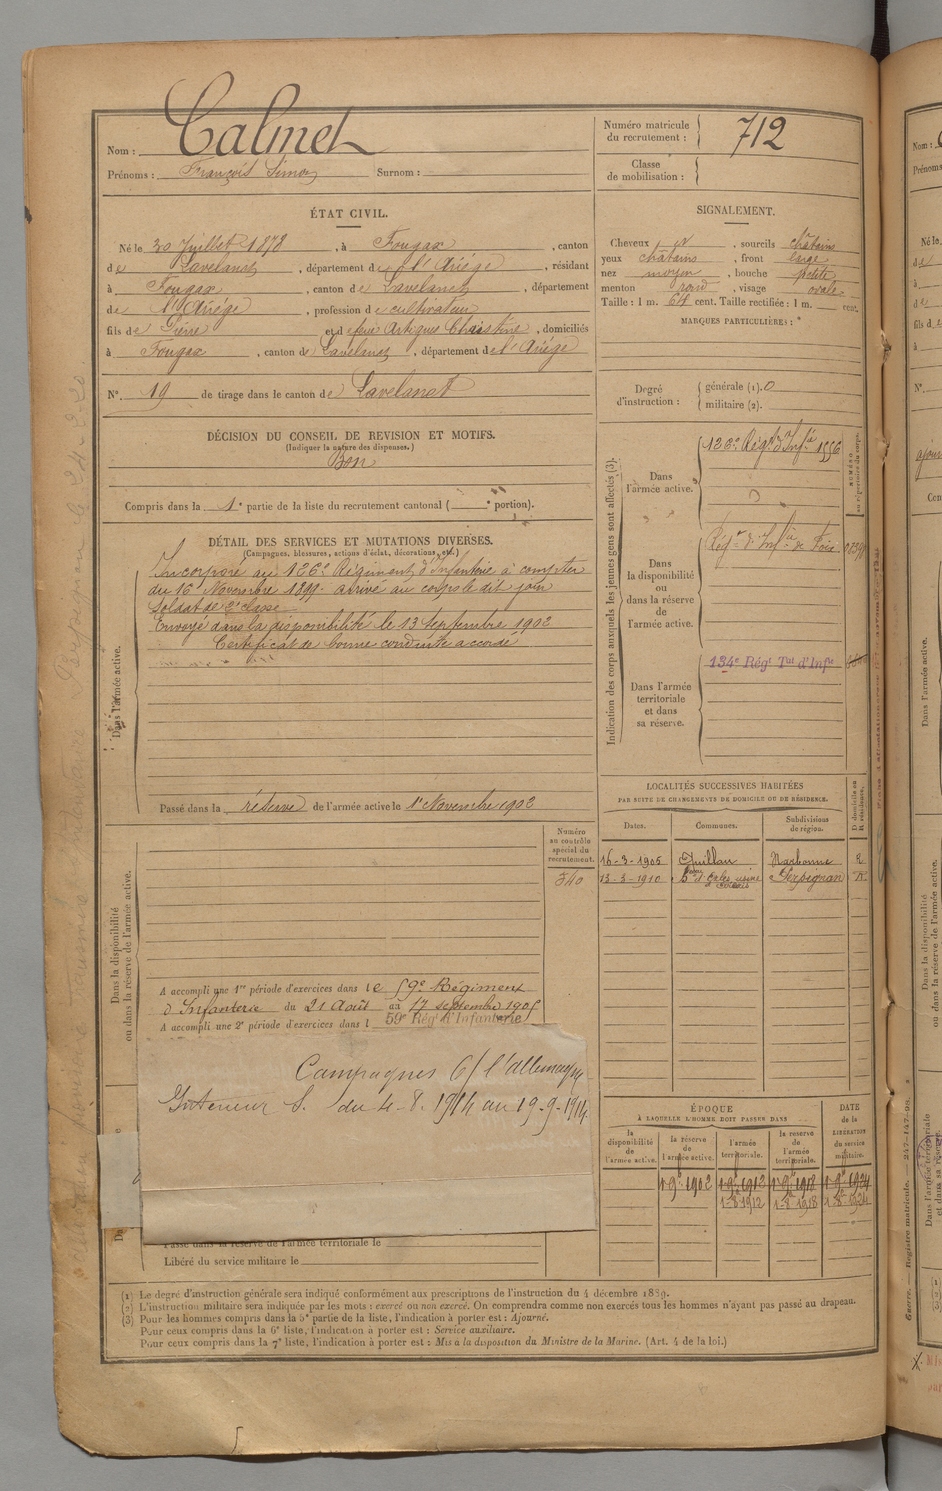 Nom : Calmet
Prénoms : François Simon Surnom :
Numéro matricule du recrutement : 712
Classe de mobilisation :
ÉTAT CIVIL.
Né le 30 Juillet 1878, à Fougax, canton
de Lavelanet, département de l'Ariège, résidant
à Fougax, canton de Lavelanet, département
de l'Ariège, profession de cultivateur
fils de Pierre et de feue Artigues Christine, domiciliés
à Fougax, canton de Lavelanet, département de l'Ariège
N° 19 de tirage dans le canton de Lavelanet
SIGNALEMENT.
Cheveux et, sourcils châtains
yeux châtains, front large
nez moyen, bouche petite
menton rond, visage ovale
Taille : 1 m. 64 cent. Taille rectifiée : 1 m. cent.
MARQUES PARTICULIÈRES :
Degré d'instruction : générale (1). 0
militaire (2).
DÉCISION DU CONSEIL DE REVISION ET MOTIFS.
(Indiquer la nature des dispenses.)
Bon
Compris dans la 1e partie de la liste du recrutement cantonal ( e portion).
DÉTAIL DES SERVICES ET MUTATIONS DIVERSES.
(Campagnes, blessures, actions d'éclat, décorations, etc.)
Dans l'armée active.
Incorporé au 126e Régiment d'Infanterie à compter
du 16 Novembre 1899. arrivé au corps le dit jour
Soldat de 2e classe
Envoyé dans la disponibilité le 13 Septembre 1902
Certificat de bonne conduite accordé
Passé dans la réserve de l'armée active le 1er Novembre 1902
Indication des corps auxquels les jeunes gens sont affectés (3).
NUMÉRO au répertoire du corps.
Dans l'armée active.
126e Régt d'Infie 1556
Dans la disponibilité ou dans la réserve de l'armée active.
Régt d'Infie de Foix
Dans l'armée territoriale et dans sa réserve.
134e Régt Tal d'Infie
LOCALITÉS SUCCESSIVES HABITÉES
PAR SUITE DE CHANGEMENTS DE DOMICILE OU DE RÉSIDENCE.
Dates. Communes. Subdivisions de région. D domicile ou R résidence.
16-3-1905 Quillan Narbonne R
13-3-1910 Perpignan R
Dans la disponibilité ou dans la réserve de l'armée active.
Numéro au contrôle spécial du recrutement.
340
A accompli une 1re période d'exercices dans le 59e Régiment
d'Infanterie du 21 Août au 17 septembre 1905
A accompli une 2e période d'exercices dans l 59e Régt d'Infanterie
Campagnes C/ l'allemagne
Intérieur S. du 4-8-1914 au 19-9-1914
Passé dans la réserve de l'armée territoriale le
Libéré du service militaire le
ÉPOQUE
À LAQUELLE L'HOMME DOIT PASSER DANS
DATE de la LIBÉRATION du service militaire.
la disponibilité de l'armée active. la réserve de l'armée active. l'armée territoriale. la réserve de l'armée territoriale.
1-9bre 1902 1-9bre 1912 1-9bre 1918 1-9bre 1924
1-8bre 1912 1-8bre 1918 1-8bre 1924
(1) Le degré d'instruction générale sera indiqué conformément aux prescriptions de l'instruction du 4 décembre 1889.
(2) L'instruction militaire sera indiquée par les mots : exercé ou non exercé. On comprendra comme non exercés tous les hommes n'ayant pas passé au drapeau.
(3) Pour les hommes compris dans la 5e partie de la liste, l'indication à porter est : Ajourné.
Pour ceux compris dans la 6e liste, l'indication à porter est : Service auxiliaire.
Pour ceux compris dans la 7e liste, l'indication à porter est : Mis à la disposition du Ministre de la Marine. (Art. 4 de la loi.)